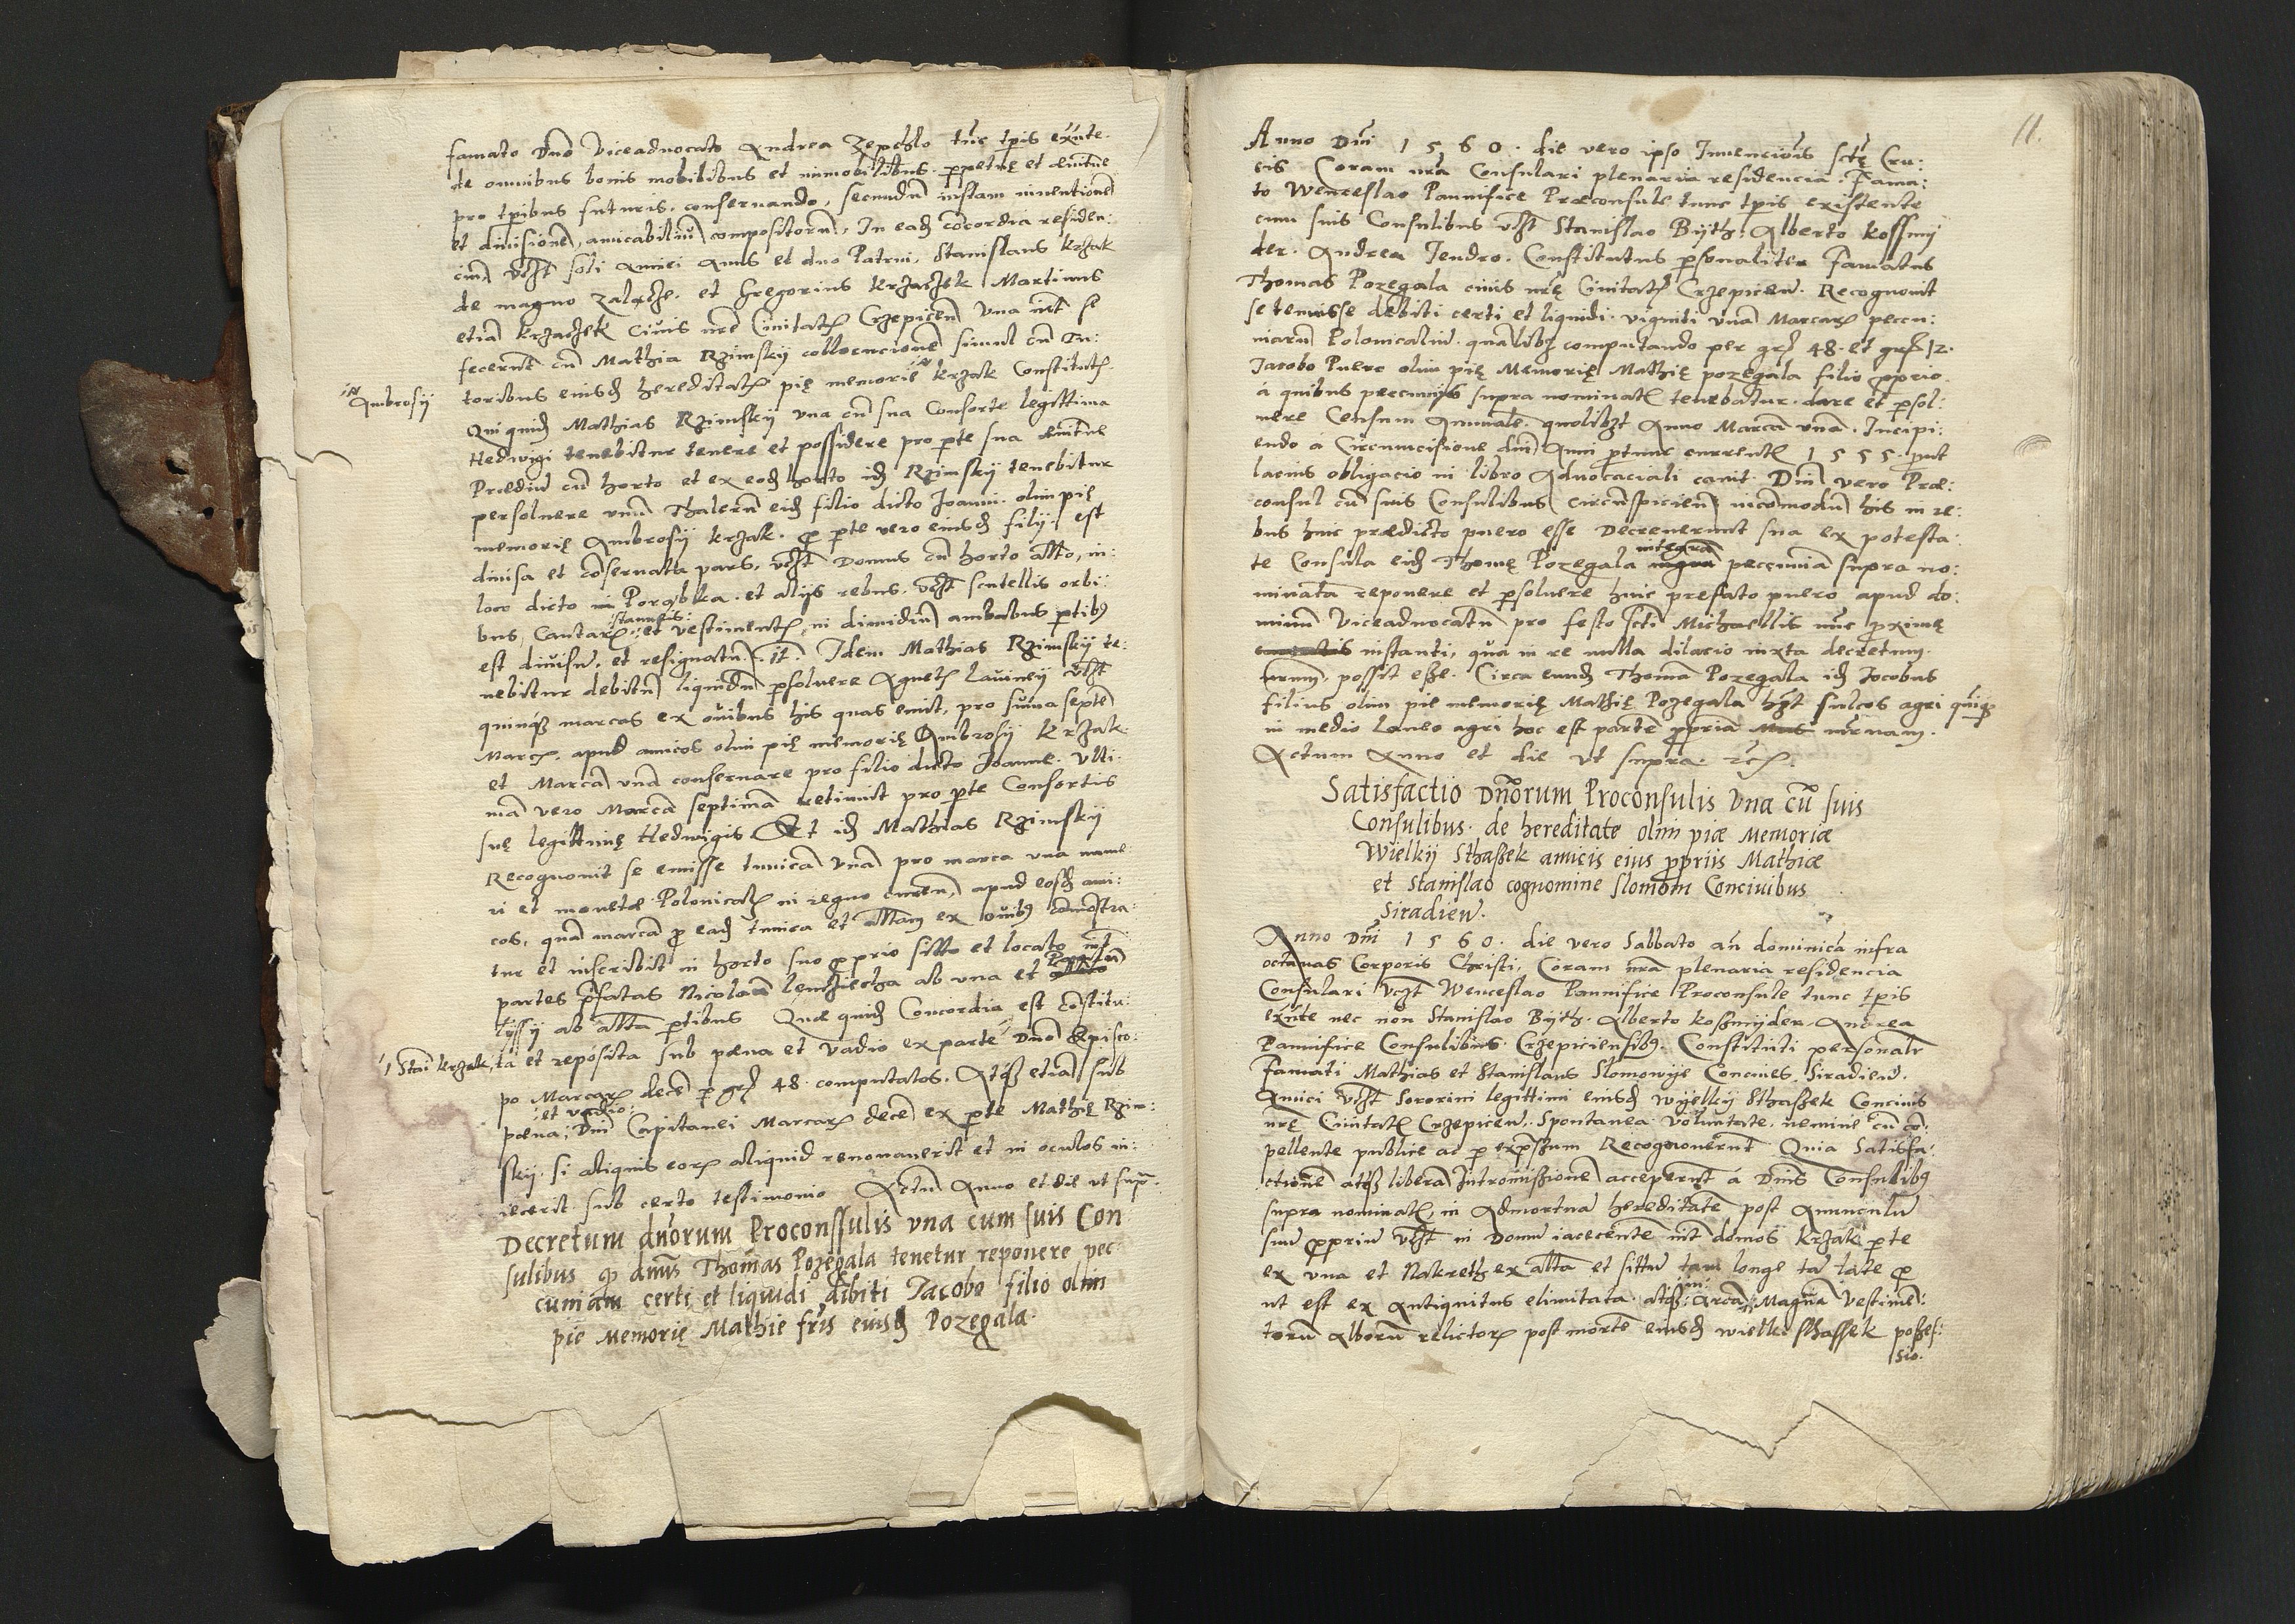 famato Dno Viceadvocato Andrea Zepchlo tūc tpis exnte.
de omnibus bonis mobilibus et immobilibus. ppetuę et
pro tpibus futuris. conservando, secundū iustam inventionē
et divisionē, amicabiliū compositorū, In eadē cōcordia residen:
ciū, vczt soli amici Avus et duo Patrui, Stanislaus Krzak
de magno zalącze. et Gregorius Krzaczek Martinus
etiā Krzaczek Civis nre Civitatis Crzepicen Una int se
fecerunt cū Mathia Rzimskÿ conventionē simul cū Tu:
toribus eiusdē hereditatis pię memorię Krzak Constitutis
Ambrosÿ
Qui quidē Mathias Rzimskÿ una cū sua Consorte legittima
Hedwigi tenebitur tenere et possidere pro pte sua
Prædiū cū horto et ex eodē horto idē Rzimskÿ tenebitur
persolvere unū Thalerū eidē filio dicto Joanni. olim pię
memorię Ambrosÿ Krzak. p pte vero eiusdē filÿ. est
divisa et cōservata pars, vczt Domus cū horto alto, in
loco dicto in Porąbka. et alÿs rebus. vczt scutellis orbi:
stanneis:
bus, Cantaris et vestimentis, in dimidiū ambabus ptibus
est divisū. et resignatū. It. Idem Mathias Rzimskÿ te:
nebitur debitū liquidū psolvere Agnetis vczt
quinqz marcas ex ovibus his quas emit, pro sūma septē
Marcis. apud amicos olim pię memorię Ambrosÿ Krzak
et Marcā unā conservare pro filio dicto Joanne. Ulti:
mā vero Marcā septimā retinuit pro pte Consortis
suę legittimę Hedwigis. Et idē Mathias Rzimskÿ
Recognovit se emisse tunicā unā pro marca una nume
ri et monetæ Polonicalis in regno curren, apud eosdē ami:
cos, quā marcā p eadē tunica et altam ex ovibus
tur et inscribit in horto suo pprio sitto et locato int
partes pfatas Nicolaū Lenczicha ab una et
ab alta ptibus Quæ quidē Concordia est constitu:
Stani Krzak, ta et reposita sub pæna et vadio ex parte Dno Episco:
po Marcaris decē p grs 48. computatos. Atqz etiā sub
et vadio:
pæna, Dni Capitanei Marcaris decē ex pte Mathię Rzim:
skÿ. si aliquis eoris aliquid renovaverit et in oculos in:
iecerit sub certo testimonio Actū Anno et die ut supr.
Decretum dnorum Proconssulis una cum suis Con
sulibus qz dnus Thomas Pozegala tenetur reponere pec
cuniam certi et liquidi dibiti Jacobo filio olim
pie Memorię Mathie fris eiusdē Pozegala.
11.
Anno Dni 1560. die vero ipso Invencionis sctę Cru:
cis Coram nra Consulari plenaria residencia. Fama:
to Wenceslao Pannifice Præconsule tunc tpis existente
cum suis Consulibus vczt Stanislao Bÿth. Alberto Kossmÿ
der. Andrea Jendro. Constitutus psonaliter Famatus
Thomas Pozegala civis nrę Civitatis Crzepicen. Recognovit
se tenuisse debiti certi et liquidi. viginti unā Marcaris pecu:
niarū Polonicaliū. quālibz computando per grs 48. et grs 12.
Jacobo Puero olim pię Memorię Mathię pozegala filio pprio.
á quibus peccunÿs supra nominatis tenebatur. dare et psol:
vere Censum Annuale. quolibzt Anno Marcā unā. Incipi:
endo a Circumcisione dni Anni currentis 1555. put
lacius obligacio in libro Advocaciali canit. Dni vero Præ:
consul cū suis Consulibus circūspiciens incōmodū his in re:
bus huic prædicto puero esse Decreverunt sua ex potesta:
te Consula eidē Thomę Pozegala integrā peccuniā supra no:
minatā reponere et psolvere huic prefato puero apud do:
minū Viceadvocatū pro festo scti Michaelis nūc pximę
instanti, qua in re nulla dilacio iuxta decretum.
possit esse. Circa eundē Thomā Pozegala idē Jacobus
filius olim pie memorię Mathię Pozegala hzt sulcos agri quiqz
in medio Laneo agri hoc est partē ppriā
Actum Anno et die ut supra. etc.
Satisfactio Dnorum Proconsulis Una cū suis
Consulibus. de hereditate olim piæ Memoriæ
Wielkÿ Sthaßek amicis eius ppriis Mathiæ
et Stanislao cognomine Slomom Concivibus
Siradien.
Anno Dni 1560. die vero Sabbato an dominicā infra
octavas Corporis Christi, Coram nra plenaria residencia
Consulari vczt Wenceslao Pannifice Proconsule tunc tpis
exnte nec non Stanislao Bÿth. Alberto Koßmÿder. Andrea
Pannifice Consulibus Crzepiciensibus. Constituti personalr
Famati Mathias et Stanislaus Slomowÿe Concives Siradien.
Amici vczt Sororini legittimi eiusdē Wÿelkÿ Sthaßek Concivis
nrę Civitatis Crzepicen. Spontanea Voluntate. nemine eū cō:
pellente publice ac p expressum Recognoverūt Quia Satisfa:
ctionē atqz liberā Intromissionē acceperūt á Dnis Consulibus
supra nominatis, in Admortuā hereditatē post Avunculū
suū ppriū vczt in Domū iacecentē int domos Krzak pte
ex una et Nakreth ex alta et sittū tam longe tā late p
ut est ex Antiquitus elimitata. atqz in Arcā Magnā Vestimē:
torū Alborū relictoris post mortē eiusdē Wielki Sthassek poßes:
sio.